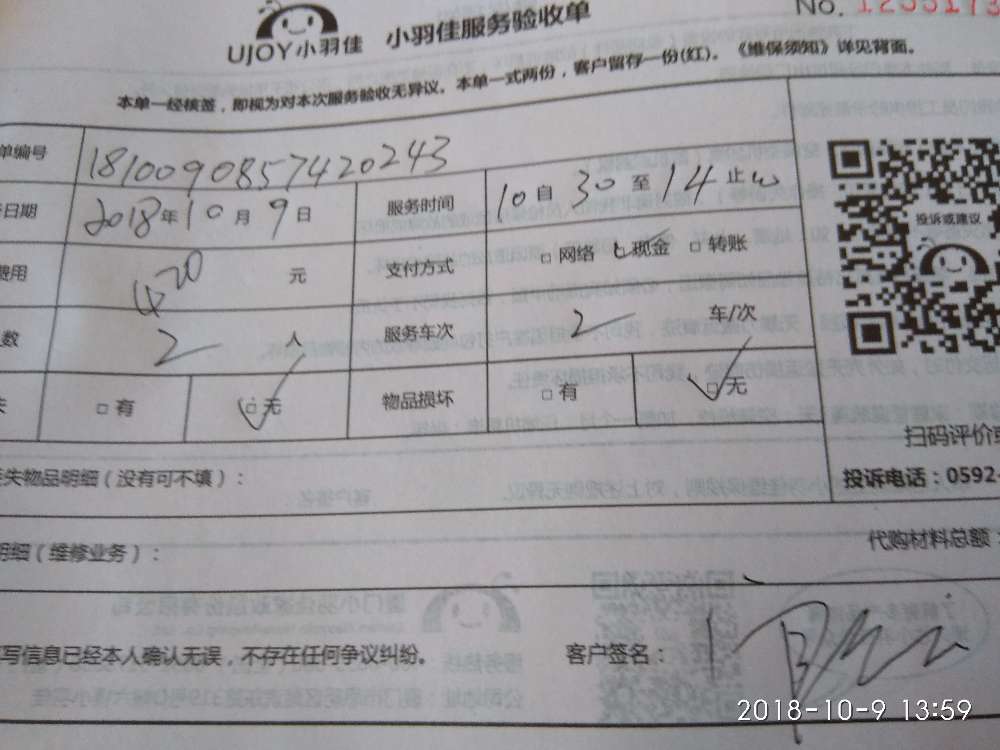 UJOY小羽佳 小羽佳服务验收单
No.
本单一经核签，即视为对本次服务验收无异议。本单一式两份，客户留存一份(红)。《维保须知》详见背面。
单编号 1810090857420243
日期 2018年10月9日 服务时间 10自30至14止
费用 420 元 支付方式 □网络 □现金 □转账
数 2 人 服务车次 2 车/次
失 □有 □无 物品损坏 □有 □无
投诉或建议
扫码评价或
失物品明细（没有可不填）：
投诉电话：0592-
明细（维修业务）：
代购材料总额：
写信息已经本人确认无误，不存在任何争议纠纷。
客户签名：
2018-10-9 13:59